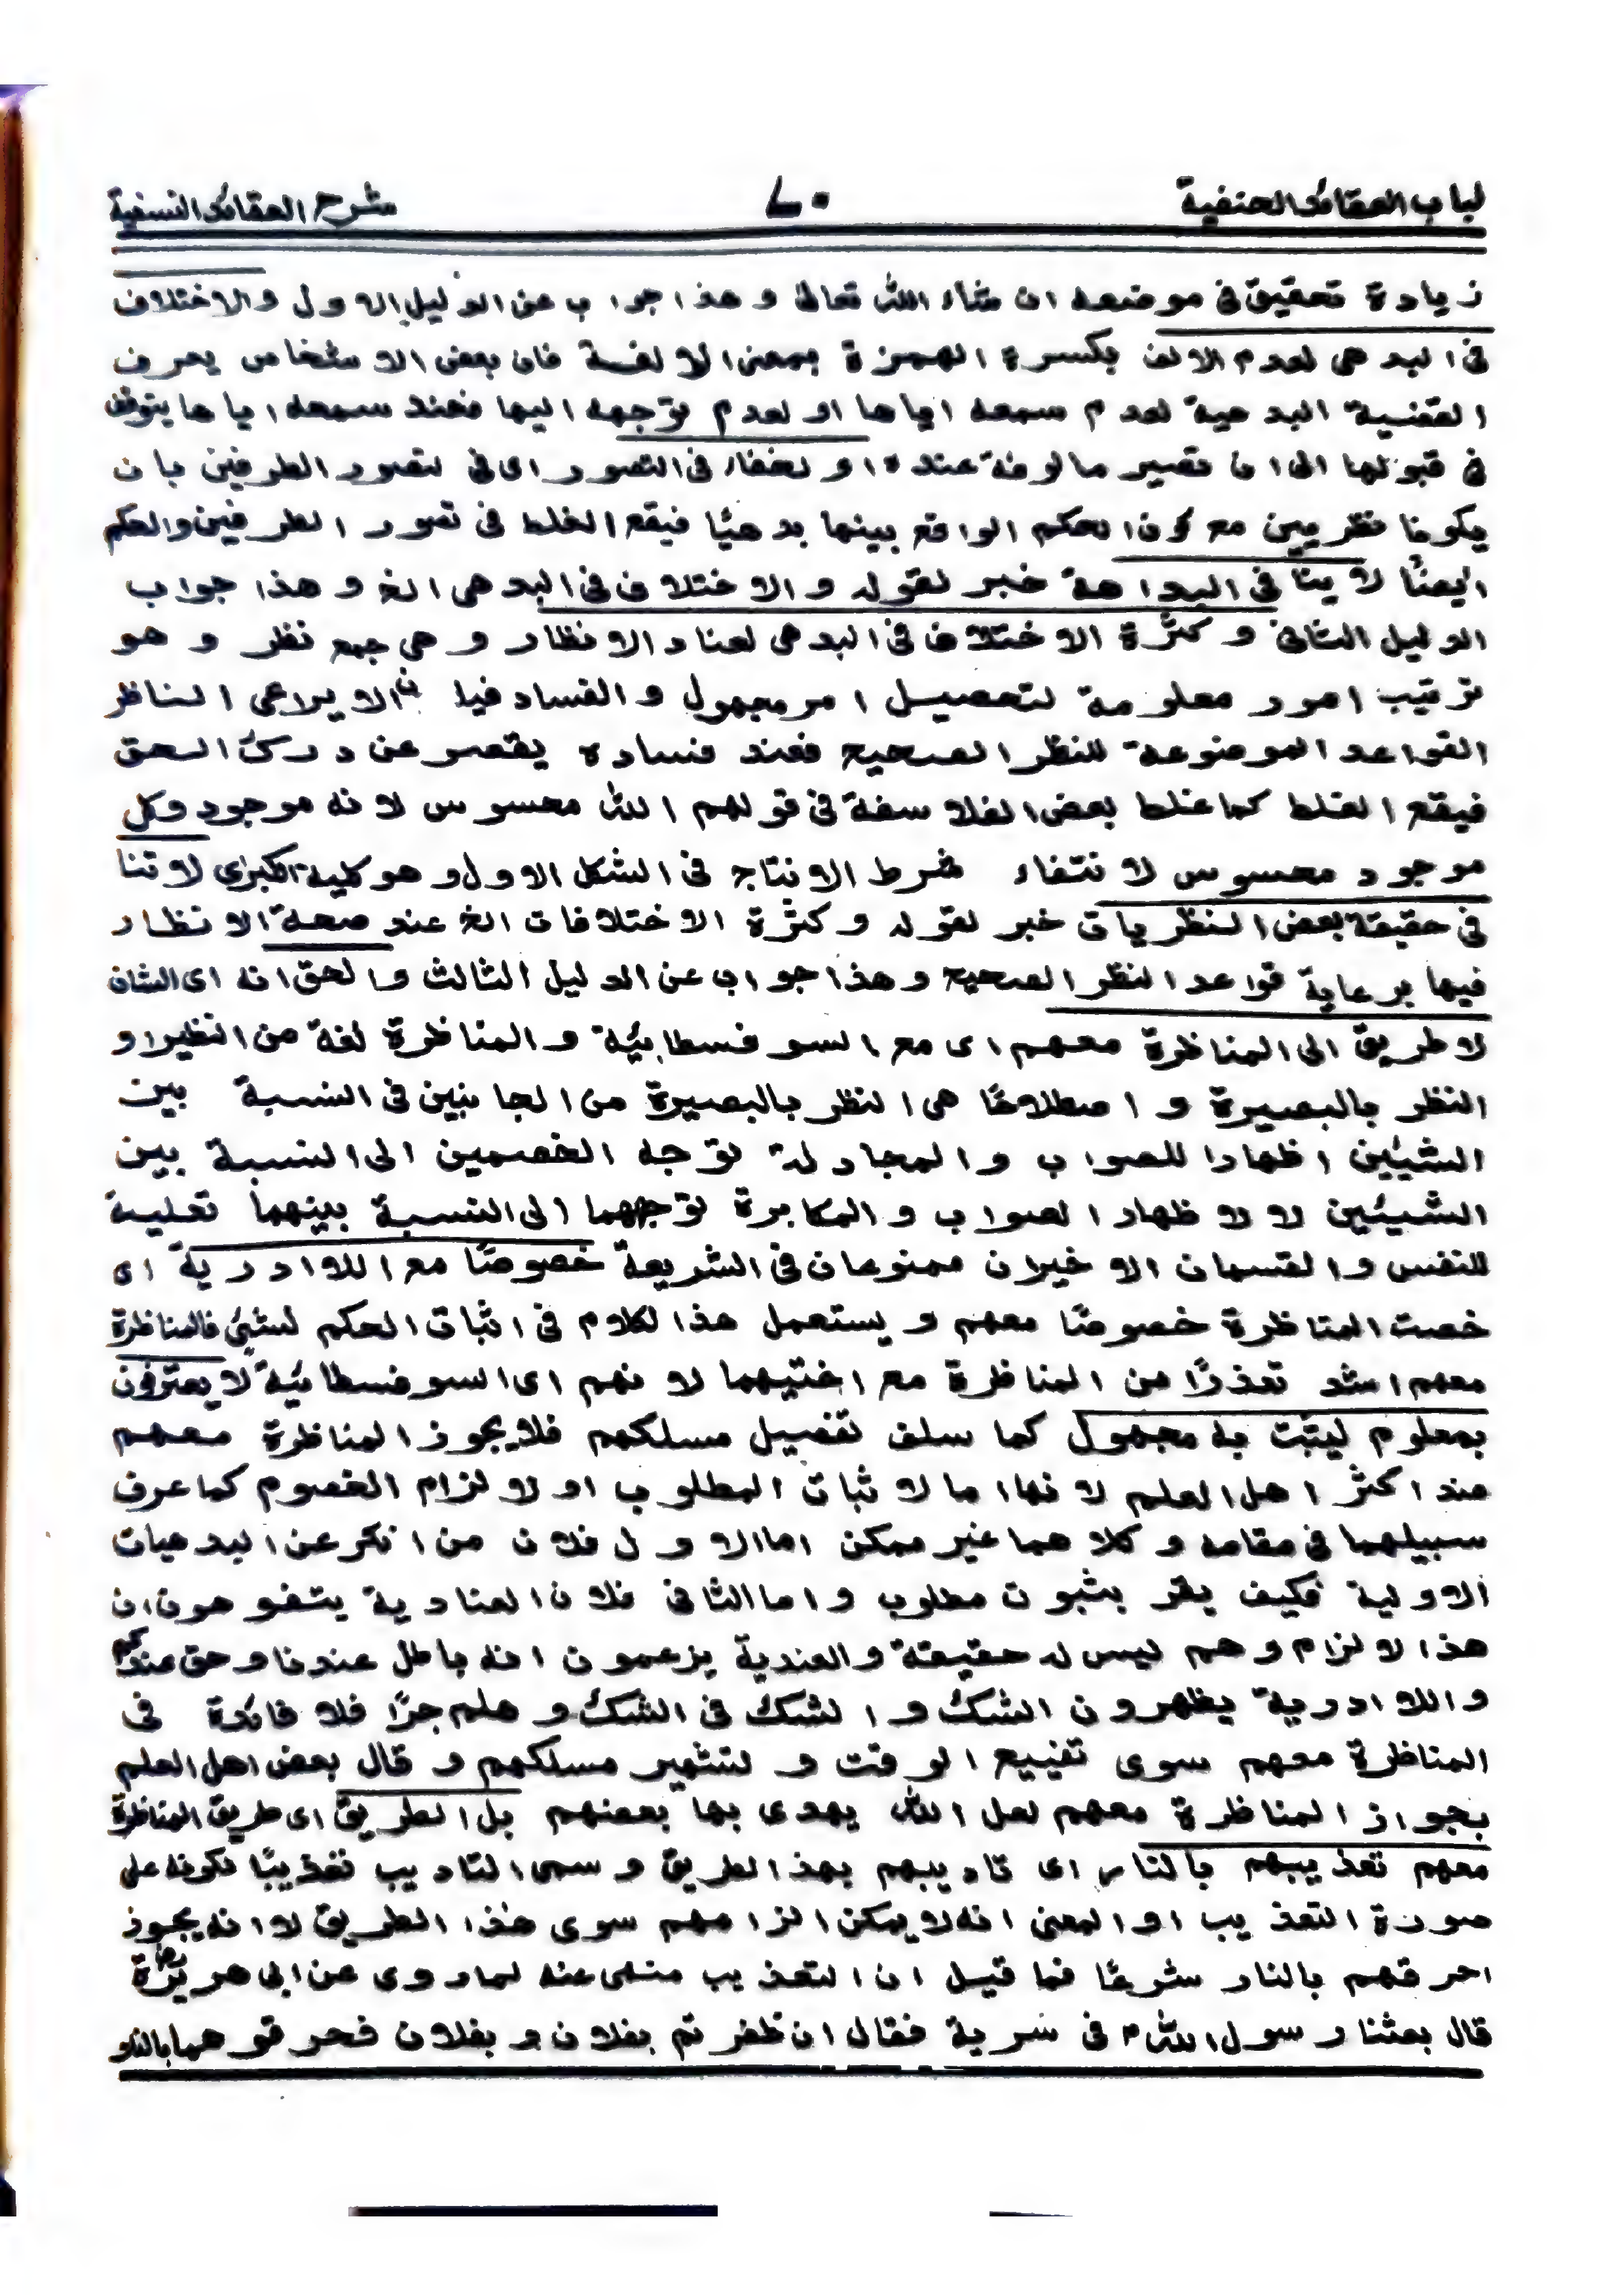 لباب العقائد الحنفية ٧٠ شرح العقائد النسفية
زيادة تحقيق فى موضعه ان شاء الله تعالى و هذا جواب عن الدليل الاول والاختلاف
فى البدهى لعدم الالف بكسرة الهمزة بمعنى الالفة فان بعض الاشخاص يعرف
القضية البدهية لعدم سمعه اياها او لعدم توجهه اليها فعند سمعه اياها يتوقف
فى قبولها الى ان تصير مالوفة عنده او لخفاء فى التصور اى فى تصور الطرفين بان
يكونا نظريين مع كون الحكم الواقع بينهما بدهيًا فيقع الخلط فى تصور الطرفين والحكم
ايضًا لا ينافى البداهة خبر لقوله والاختلاف فى البدهى الخ و هذا جواب
الدليل الثانى و كثرة الاختلاف فى البدهى لعناد الانظار و هى جمع نظر و هو
ترتيب امور معلومة لتحصيل امر مجهول و الفساد فيه ان لا يراعى الناظر
القواعد الموضوعة للنظر الصحيح فعند فساده يقصر عن درك الحق
فيقع الغلط كما غلط بعض الفلاسفة فى قولهم الله محسوس لانه موجود وكل
موجود محسوس لانتفاء شرط الانتاج فى الشكل الاول و هو كلية الكبرى لا تنا
فى حقيقة بعض النظريات خبر لقوله و كثرة الاختلافات الخ عند صحة الانظار
فيها برعاية قواعد النظر الصحيح و هذا جواب عن الدليل الثالث و الحق انه اى الشان
لا طريق الى المناظرة معهم اى مع السوفسطائية و المناظرة لغة من النظير او
النظر بالبصيرة و اصطلاحًا هى النظر بالبصيرة من الجانبين فى النسبة بين
الشيئين اظهارا للصواب و المجادلة توجه الخصمين الى النسبة بين
الشيئين لا لاظهار الصواب و المكابرة توجههما الى النسبة بينهما تعلية
للنفس و القسمان الاخيران ممنوعان فى الشريعة خصوصًا مع اللاادرية اى
خصت المناظرة خصوصًا معهم و يستعمل هذا الكلام فى اثبات الحكم لشئ فالمناظرة
معهم اشد تعذرًا من المناظرة مع اختيهما لانهم اى السوفسطائية لا يعترفون
بمعلوم ليثبت به مجهول كما سلف تفصيل مسلكهم فلا يجوز المناظرة معهم
عند اكثر اهل العلم لانها اما لاثبات المطلوب او لالزام الخصوم كما عرف
سبيلهما فى مقامه و كلاهما غير ممكن اما الاول فلان من انكر عن البدهيات
الاولية فكيف يقر بثبوت مطلوب و اما الثانى فلان العنادية يتفوهون ان
هذا الالزام وهم ليس له حقيقة و العندية يزعمون انه باطل عندنا و حق عندكم
و اللاادرية يظهرون الشك و الشك فى الشك و هلم جرًا فلا فائدة فى
المناظرة معهم سوى تضييع الوقت و لتشهير مسلكهم و قال بعض اهل العلم
بجواز المناظرة معهم لعل الله يهدى بها بعضهم بل الطريق اى طريق المناظرة
معهم تعذيبهم بالنار اى تاديبهم بهذا الطريق و سمى التاديب تعذيبًا لكونه على
صورة التعذيب او المعنى انه لا يمكن الزامهم سوى هذا الطريق لا انه يجوز
احرقهم بالنار شرعًا فما قيل ان التعذيب منهى عنه لما روى عن ابى هريرة رض
قال بعثنا رسول الله ﷺ فى سرية فقال ان ظفرتم بفلان و بفلان فحرقوهما بالنار